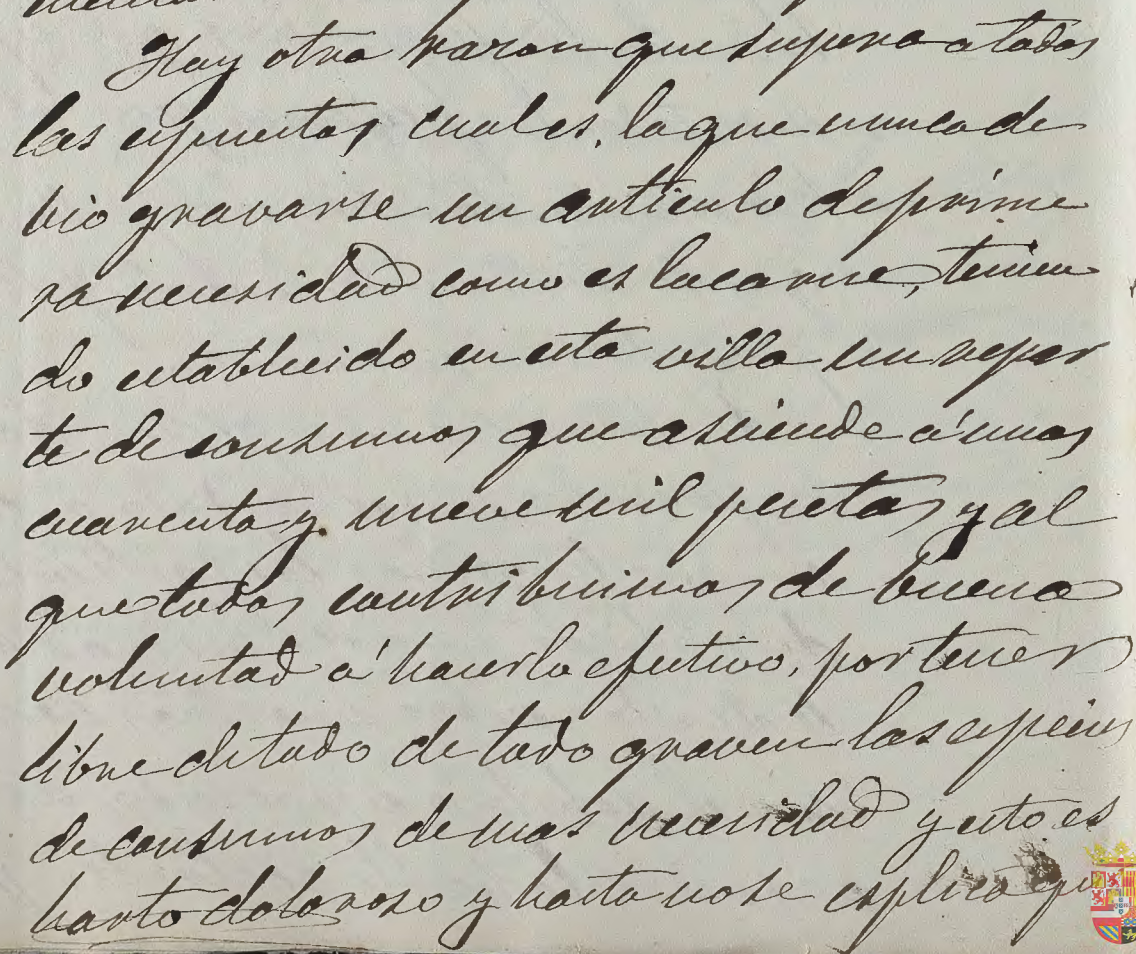 Hay otra razon que supera a todas
las espuestas, cual es, la que nunca de
bio gravarse un articulo de prime
ra necesidad como es la carne, tenien
do establecido en esta villa un repar
te de consumos que asciende á unas
cuarenta y nueve mil pesetas y al
que todos contribuimos de buena
voluntad á hacerlo efectivo, por tener
libre de todo graven las especies
de consumos de mas necesidad y esto es
harto doloroso y hasta no se esplica que